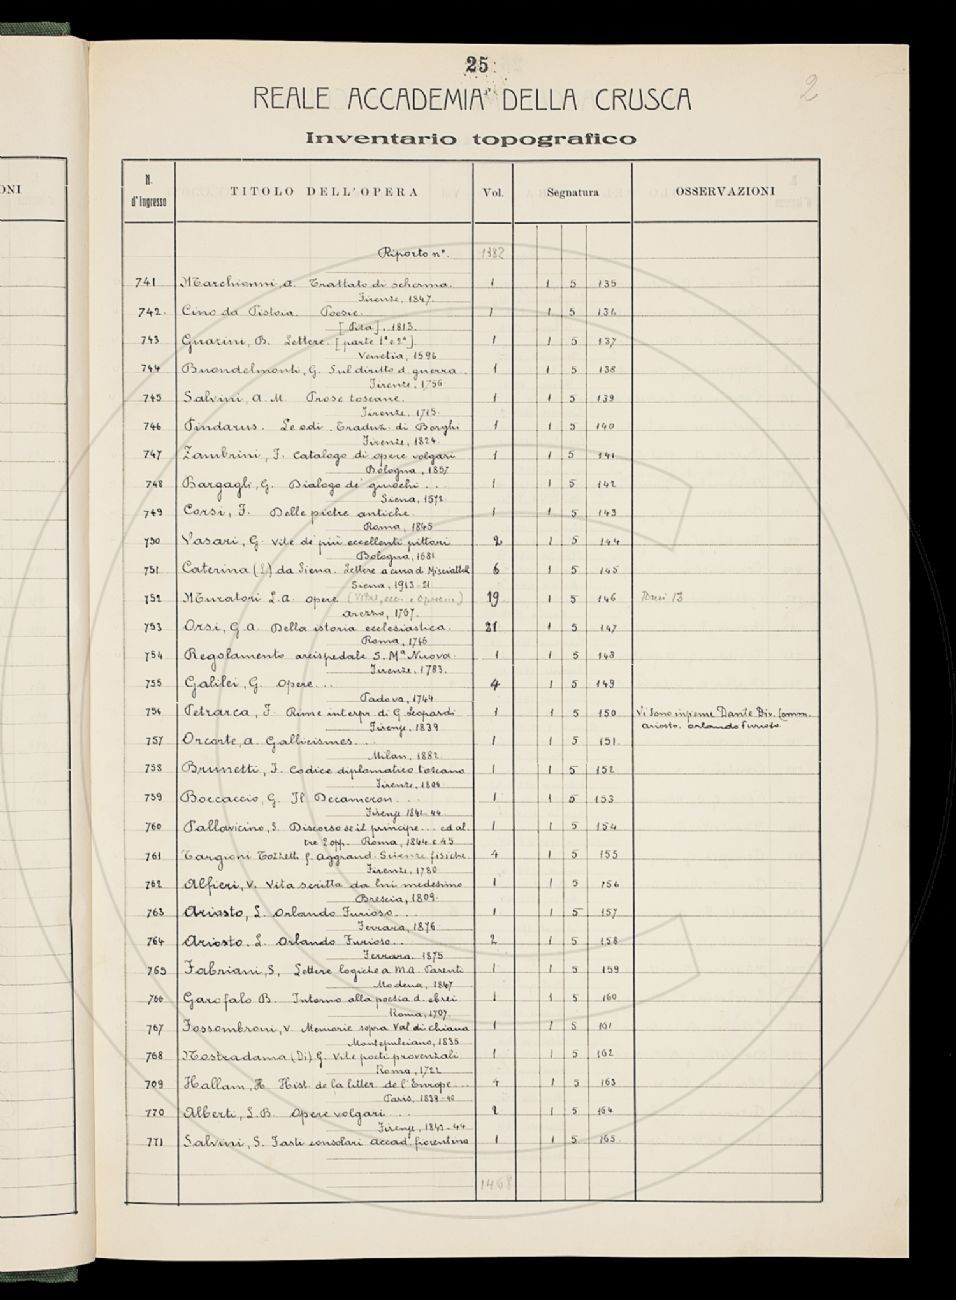 ONI
25
2
REALE ACCADEMIA DELLA CRUSCA
Inventario topografico
N. d'Ingresso TITOLO DELL'OPERA Vol. Segnatura OSSERVAZIONI
Riporto n°. 1382
741 Marchionni, A. Trattato di scherma. 1 1 5 135
Firenze, 1847.
742. Cino da Pistoia. Poesie. 1 1 5 136
[Pisa], 1813.
743 Guarini, B. Lettere. [parte 1ª e 2ª] 1 1 5 137
Venetia, 1596
744 Buondelmonti, G. Sul diritto d. guerra 1 1 5 138
Firenze, 1756
745 Salvini, A. M. Prose toscane. 1 1 5 139
Firenze, 1715.
746 Pindarus. Le odi. Traduz. di Borghi 1 1 5 140
Firenze, 1824.
747 Zambrini, F. Catalogo di opere volgari 1 1 5 141
Bologna, 1857
748 Bargagli, G. Dialogo de' giuochi ... 1 1 5 142
Siena, 1572.
749 Corsi, F. Delle pietre antiche. 1 1 5 143
Roma, 1845
750 Vasari, G. Vite de' più eccellenti pittori 2 1 5 144
Bologna, 1681
751 Caterina (S.) da Siena. Lettere a cura d. Misciattelli 6 1 5 145
Siena, 1913-21
752 Muratori L. A. Opere 19 1 5 146 13
Arezzo, 1767.
753 Orsi, G. A. Della istoria ecclesiastica. 21 1 5 147
Roma, 1746
754 Regolamento arcispedale S. Mª Nuova. 1 1 5 148
Firenze, 1783.
755 Galilei, G. Opere ... 4 1 5 149
Padova, 1744.
756 Petrarca, F. Rime interpr. di G. Leopardi 1 1 5 150 Vi sono insieme Dante Div. Comm.
Firenze, 1839 Ariosto. Orlando Furioso
757 Orcorte, A. Gallicismes ... 1 1 5 151.
Milan, 1882.
758 Brunetti, F. Codice diplomatico toscano 1 1 5 152
Firenze, 1804
759 Boccaccio, G. Il Decameron ... 1 1 5 153
Firenze 1841-44
760 Pallavicino, S. Discorso se il principe ... ed al. 1 1 5 154
tre 2 opp. Roma, 1844 e 45
761 Targioni Tozzetti G. Aggrand. Scienze fisiche 4 1 5 155
Firenze, 1780
762 Alfieri, V. Vita scritta da lui medesimo 1 1 5 156
Brescia, 1809.
763 Ariosto, L. Orlando Furioso ... 1 1 5 157
Ferrara, 1876
764 Ariosto. L. Orlando Furioso .. 2 1 5 158
Ferrara. 1875
765 Fabriani, S, Lettere logiche a M.A. Parenti 1 1 5 159
Modena, 1847
766 Garofalo B. Intorno alla poesia d. ebrei 1 1 5 160
Roma, 1707.
767 Fossombroni, V. Memorie sopra Val di chiana 1 1 5 161
Montepulciano, 1835
768 Nostradama (Di) G. Vite poeti provenzali 1 1 5 162
Roma, 1722
769 Hallam, H. Hist. de la litter. de l'Europe ... 4 1 5 163
Paris, 1839-40
770 Alberti, L. B. Opere volgari ... 2 1 5 164
Firenze, 1843-44
771 Salvini, S. Fasti consolari Accad. fiorentina 1 1 5 165.
1468